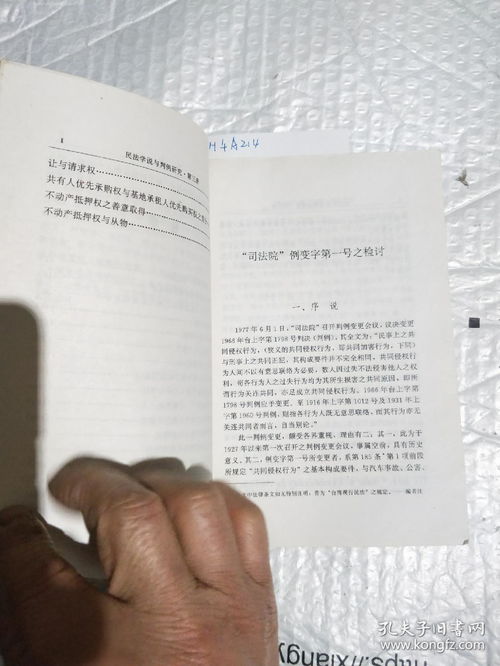 H4A214
8
民法学说与判例研究·第三册
让与请求权
共有人优先承购权与基地承租人优先购买权之
不动产抵押权之善意取得
不动产抵押权与从物
“司法院”例变字第一号之检讨
一、序 说
1977年6月1日，“司法院”召开判例变更会议，议决变更
1966年台上字第1798号判决（判例），其全文为：“民事上之共
同侵权行为，（狭义的共同侵权行为，即共同加害行为，下同）
与刑事上之共同正犯，其构成要件并不完全相同，共同侵权行
为人间不以有意思联络为必要，数人因过失不法侵害他人之权
利，苟各行为人之过失行为均为其所生损害之共同原因，即所
谓行为关连共同，亦足成立共同侵权行为。1966年台上字第
1798号判例应予变更。至1916年上字第1012号及1931年上
字第1960号判例，则指各行为人既无意思联络，而其行为亦无
关连共同者而言，自当别论。”
此一判例变更，颇受各界重视，理由有二：其一，此为于
1927年以来第一次召开之判例变更会议，事属空前，具有历史
意义。其二，例变字第一号所变更者，系第185条*第1项前段
所规定“共同侵权行为”之基本构成要件，与汽车事故、公害、
文中法律条文如无特别注明，皆为“台湾现行民法”之规定。——编者注
孔夫子旧书网
www.kongfz.com
https://xiangy